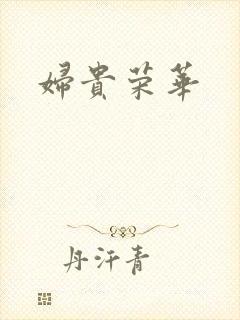 婦貴荣華
丹汗青